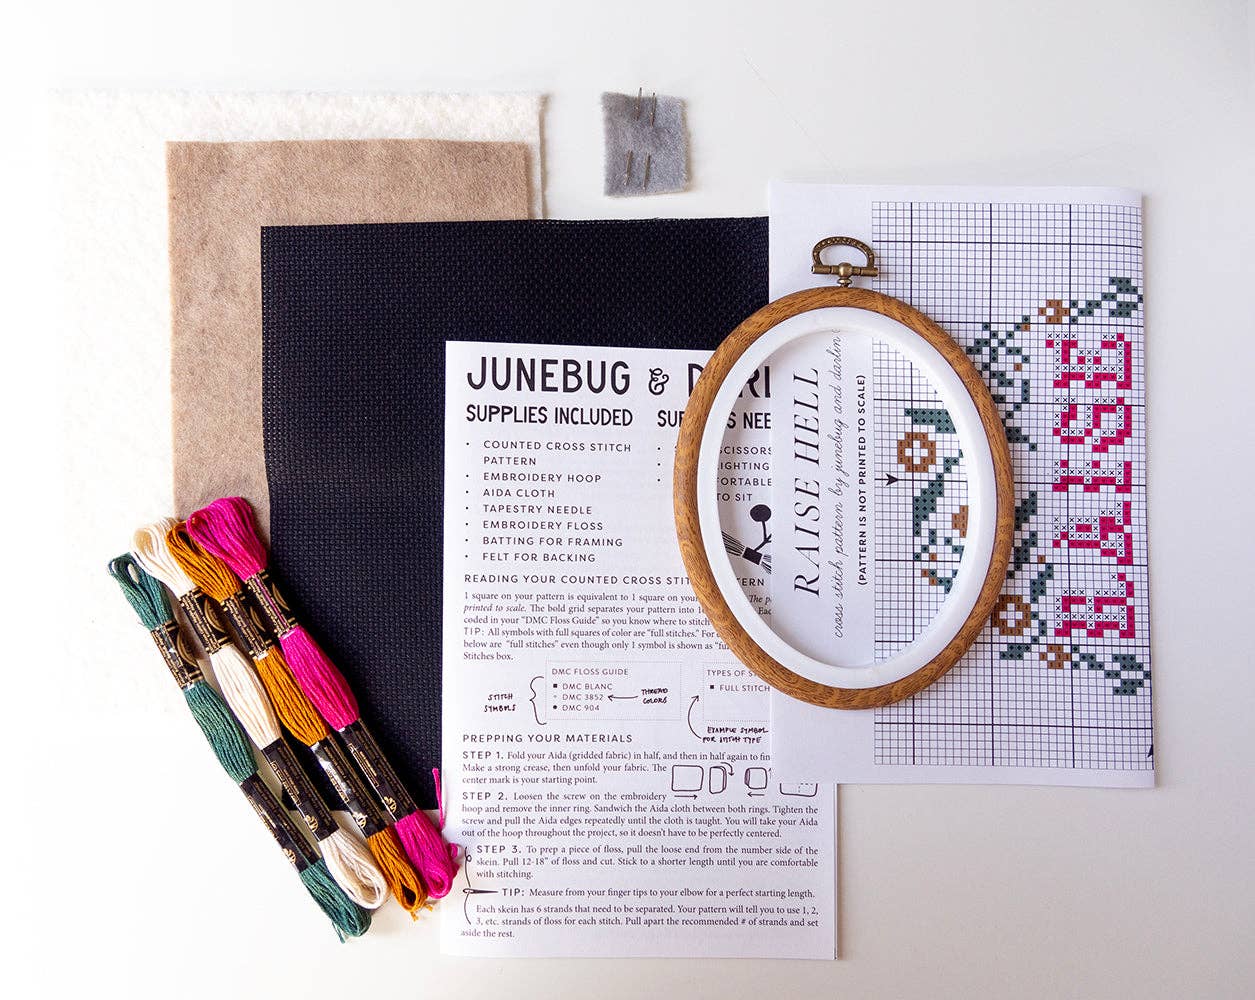 JUNEBUG &
SUPPLIES INCLUDED
• COUNTED CROSS STITCH
PATTERN
• EMBROIDERY HOOP
• AIDA CLOTH
• TAPESTRY NEEDLE
• EMBROIDERY FLOSS
• BATTING FOR FRAMING
• FELT FOR BACKING
SCISSORS
LIGHTING
TO SIT
READING YOUR COUNTED CROSS STITCH PATTERN
1 square on your pattern is equivalent to 1 square on your
printed to scale. The bold grid separates your pattern into
coded in your "DMC Floss Guide" so you know where to stitch
TIP: All symbols with full squares of color are "full stitches." For
below are "full stitches" even though only 1 symbol is shown as
Stitches box.
DMC FLOSS GUIDE
■ DMC BLANC
DMC 3852
● DMC 904
STITCH
SYMBOLS
THREAD
COLORS
TYPES OF
■ FULL STITCH
EXAMPLE SYMBOL
FOR STITCH TYPE
PREPPING YOUR MATERIALS
STEP 1. Fold your Aida (gridded fabric) in half, and then in half again to
Make a strong crease, then unfold your fabric. The
center mark is your starting point.
STEP 2. Loosen the screw on the embroidery
hoop and remove the inner ring. Sandwich the Aida cloth between both rings. Tighten the
screw and pull the Aida edges repeatedly until the cloth is taught. You will take your Aida
out of the hoop throughout the project, so it doesn't have to be perfectly centered.
STEP 3. To prep a piece of floss, pull the loose end from the number side of the
skein. Pull 12-18" of floss and cut. Stick to a shorter length until you are comfortable
with stitching.
TIP: Measure from your finger tips to your elbow for a perfect starting length.
Each skein has 6 strands that need to be separated. Your pattern will tell you to use 1, 2,
3, etc. strands of floss for each stitch. Pull apart the recommended # of strands and set
aside the rest.
RAISE HELL
cross stitch pattern by junebug and darlin
(PATTERN IS NOT PRINTED TO SCALE)
RAISE